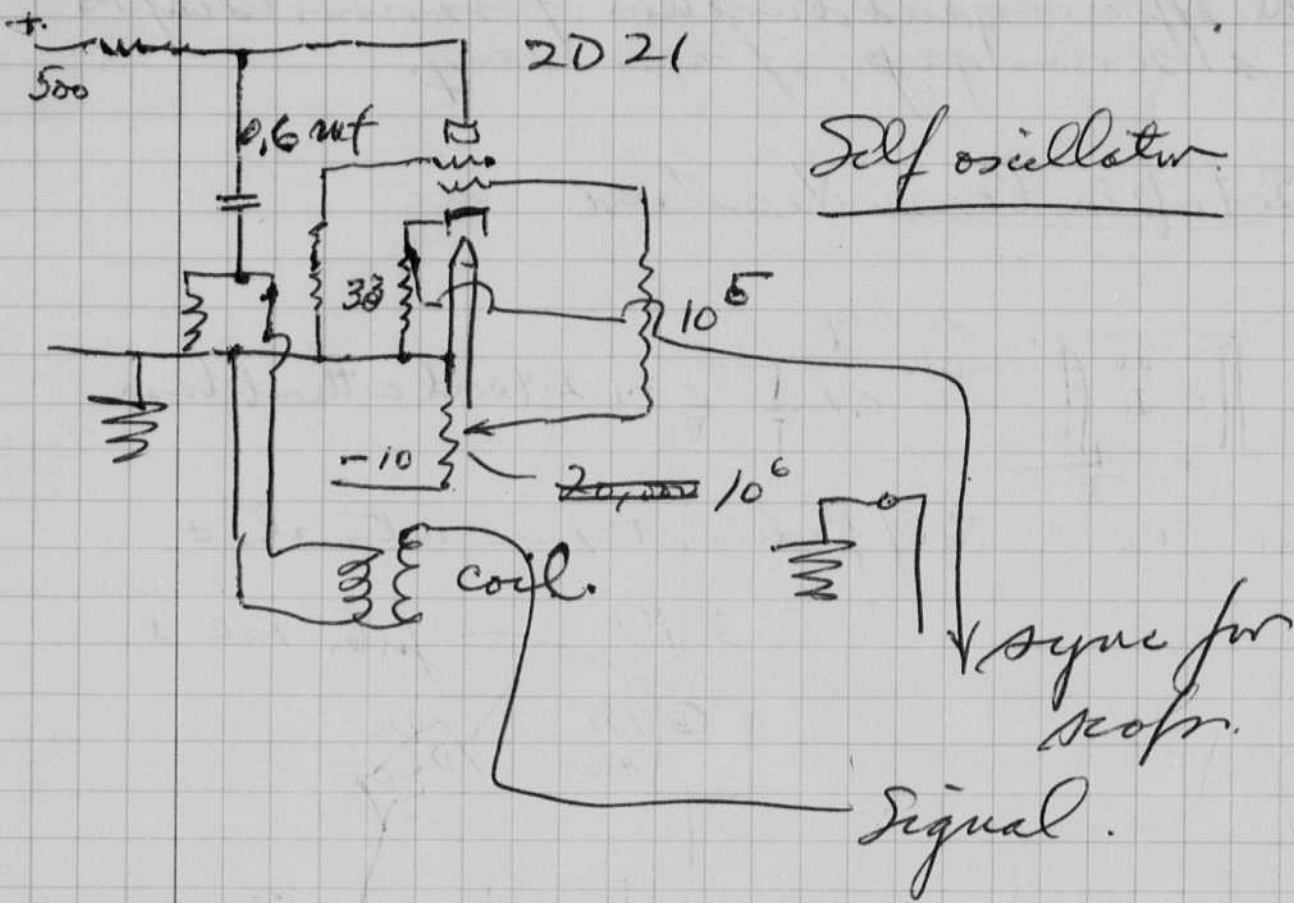 +
2D21
500
0.6 mf
Self oscillator
38
10⁵
-10
20,000 10⁶
coil.
sync for
scope.
Signal.